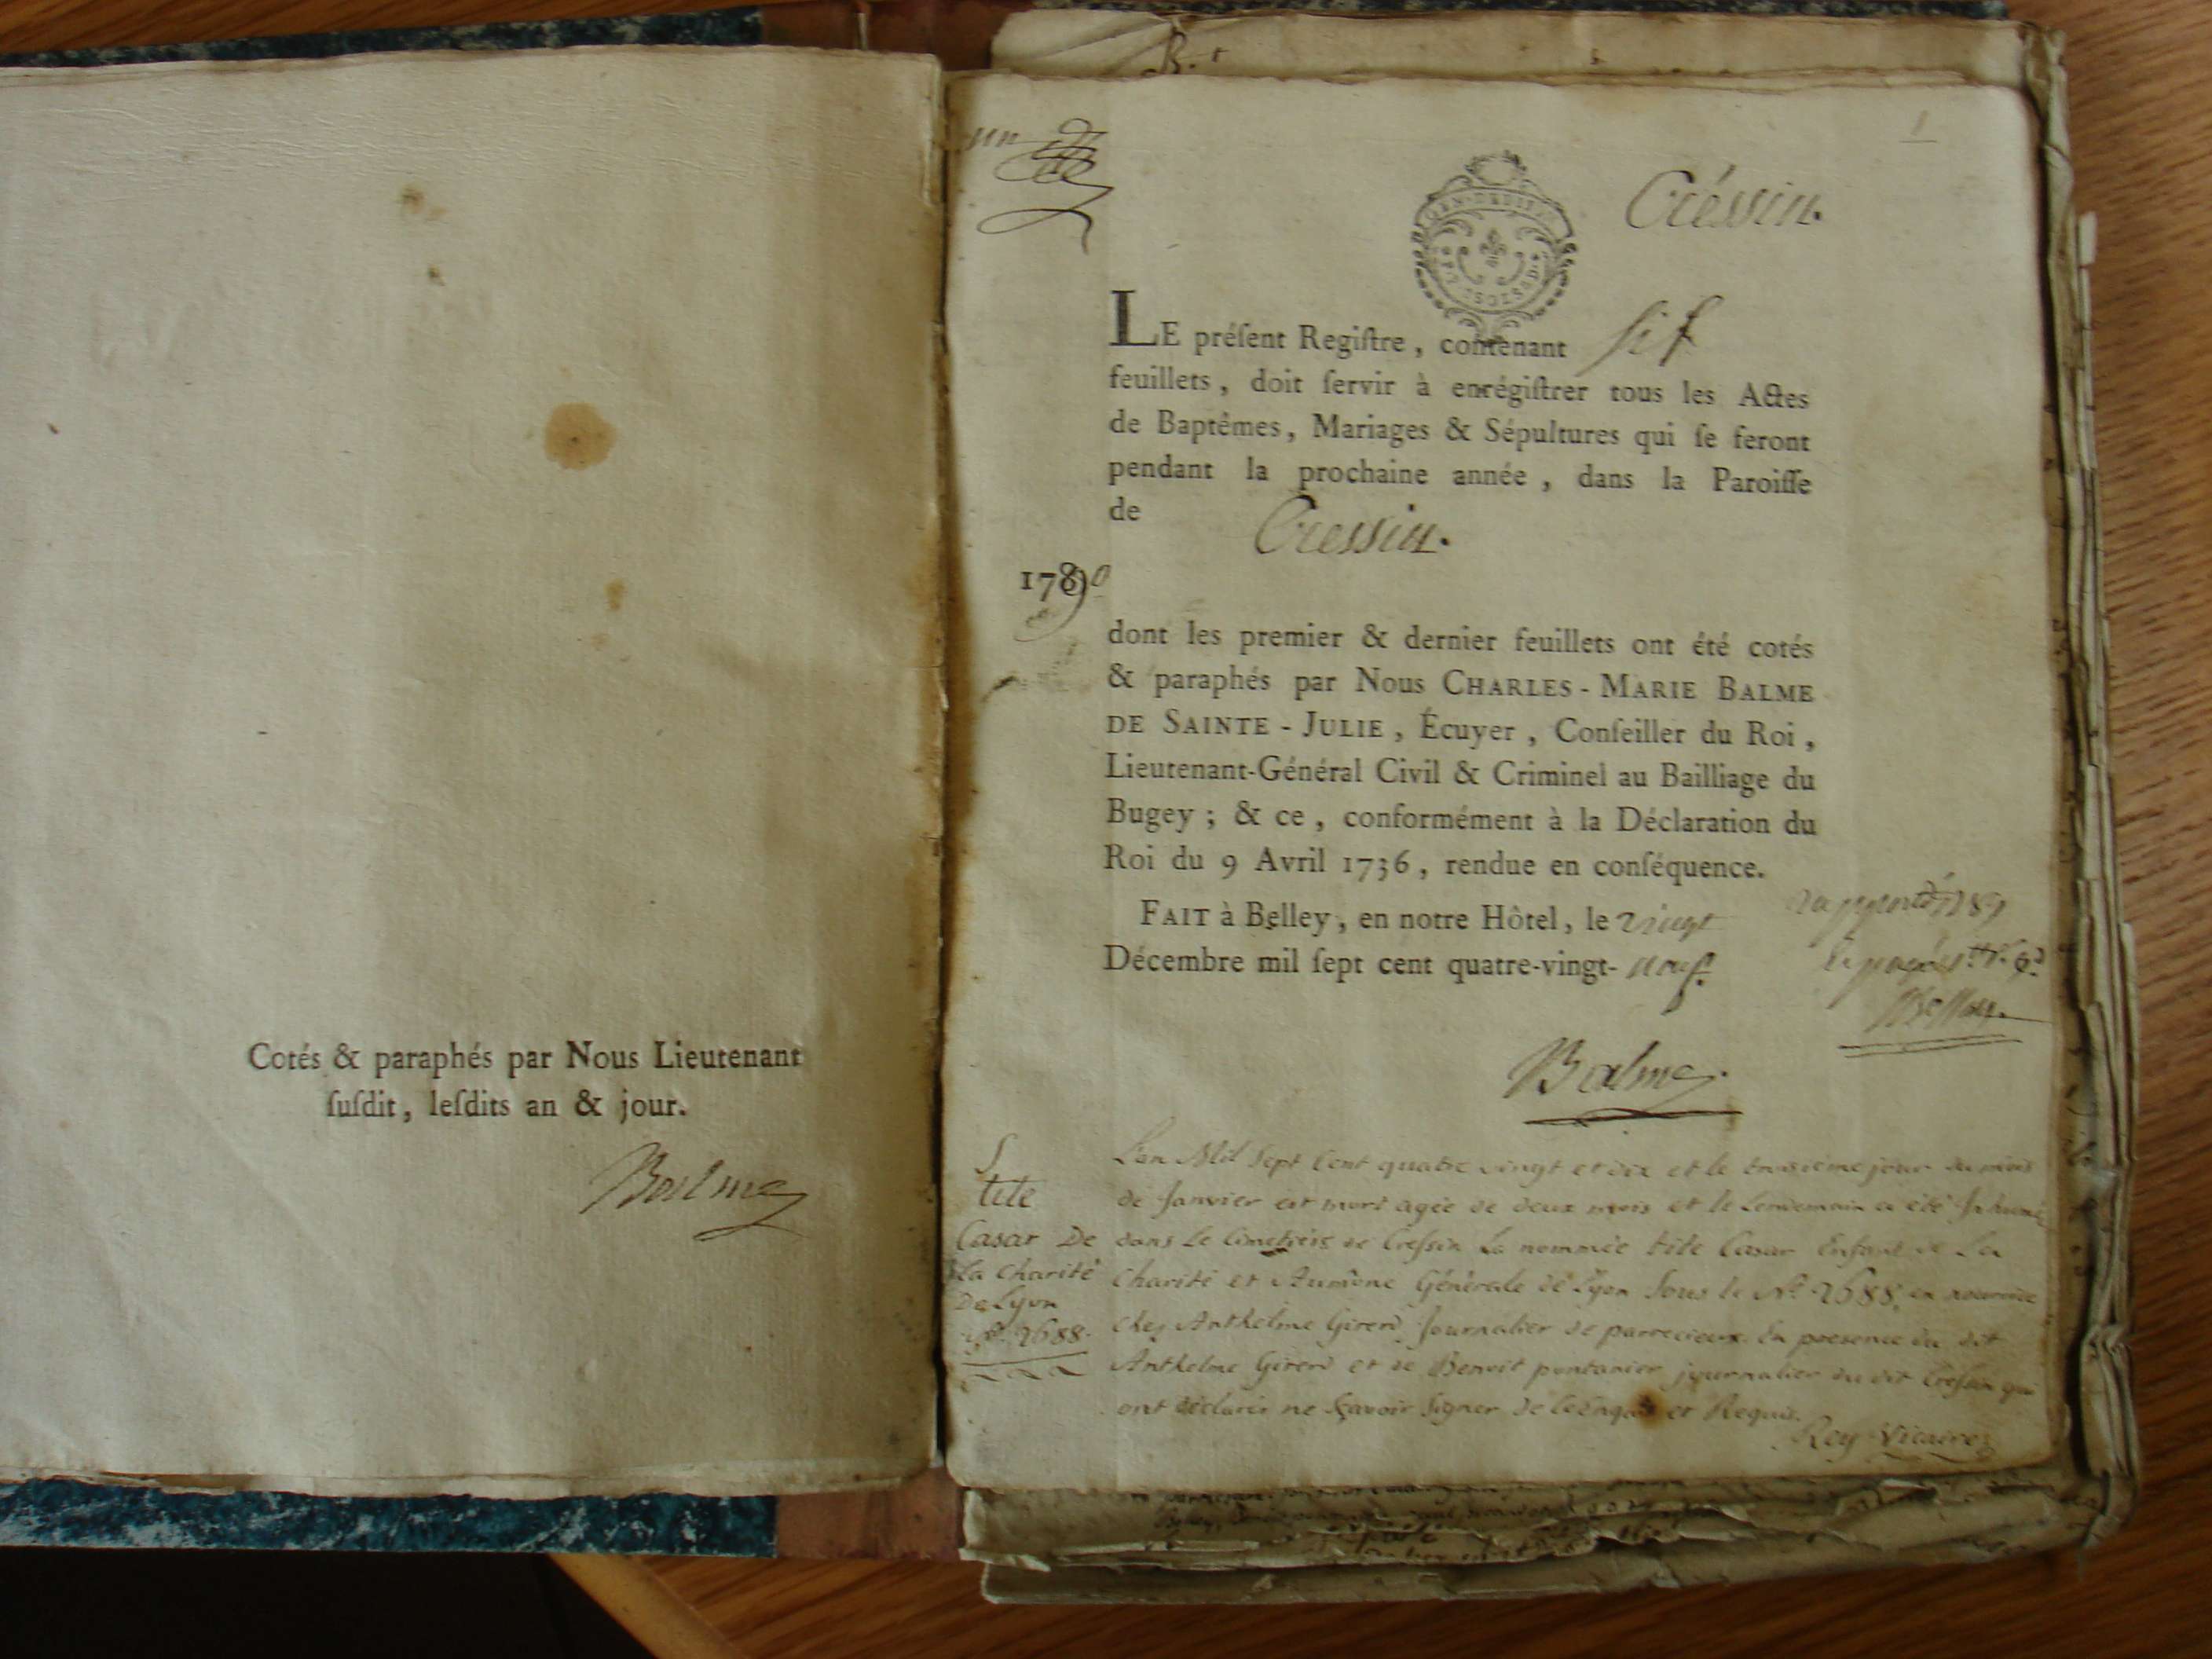 Cotés & paraphés par Nous Lieutenant
ſuſdit, leſdits an & jour.
Balme
un
1
Créssin.
LE préſent Regiſtre, contenant six
feuillets, doit ſervir à enrégiſtrer tous les Actes
de Baptêmes, Mariages & Sépultures qui ſe feront
pendant la prochaine année, dans la Paroiſſe
de Cressin.
1790
dont les premier & dernier feuillets ont été cotés
& paraphés par Nous CHARLES-MARIE BALME
DE SAINTE-JULIE, Écuyer, Conſeiller du Roi,
Lieutenant-Général Civil & Criminel au Bailliage du
Bugey; & ce, conformément à la Déclaration du
Roi du 9 Avril 1736, rendue en conſéquence.
FAIT à Belley, en notre Hôtel, le vingt
Décembre mil ſept cent quatre-vingt-neuf.
Balme
S
tite
Casar De
La charité
De Lyon
N° 2688.
L'an Mil Sept Cent quatre vingt et dix et le troisième jour du mois
de Janvier est mort agée de deux mois et le Lendemain a été Inhumé
dans Le Cimetiere de Cressin La nommée tite Casar Enfant de La
Charité et Aumône Générale de Lyon Sous le N° 2688. en nourrice
chez Anthelme Girerd Journalier de parrecieux. En presence du dit
Anthelme Girerd et de Benoit pontanier journalier du dit Cressin qui
ont déclarés ne sçavoir Signer de Ce Enquis et Requis.
Rey Vicaire